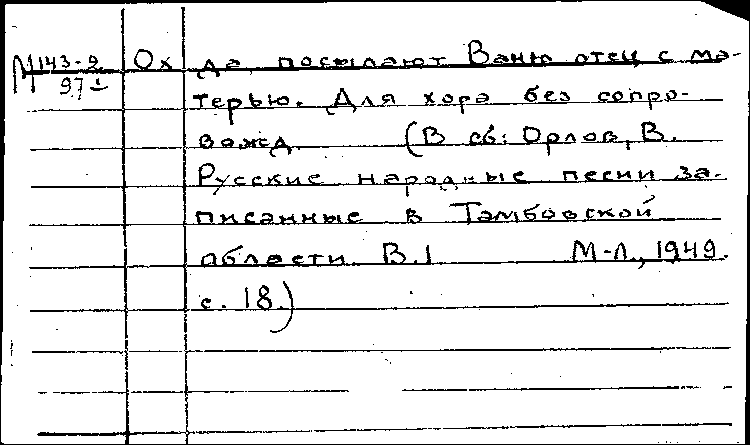 М 143-9 Ох да посылают Ваню отец с ма-
97 терью. Для хора без сопро-
вожд. (В сб: Орлов, В.
Русские народные песни за-
писанные в Тамбовской
области. В.1 М-Л., 1949.
с. 18.)